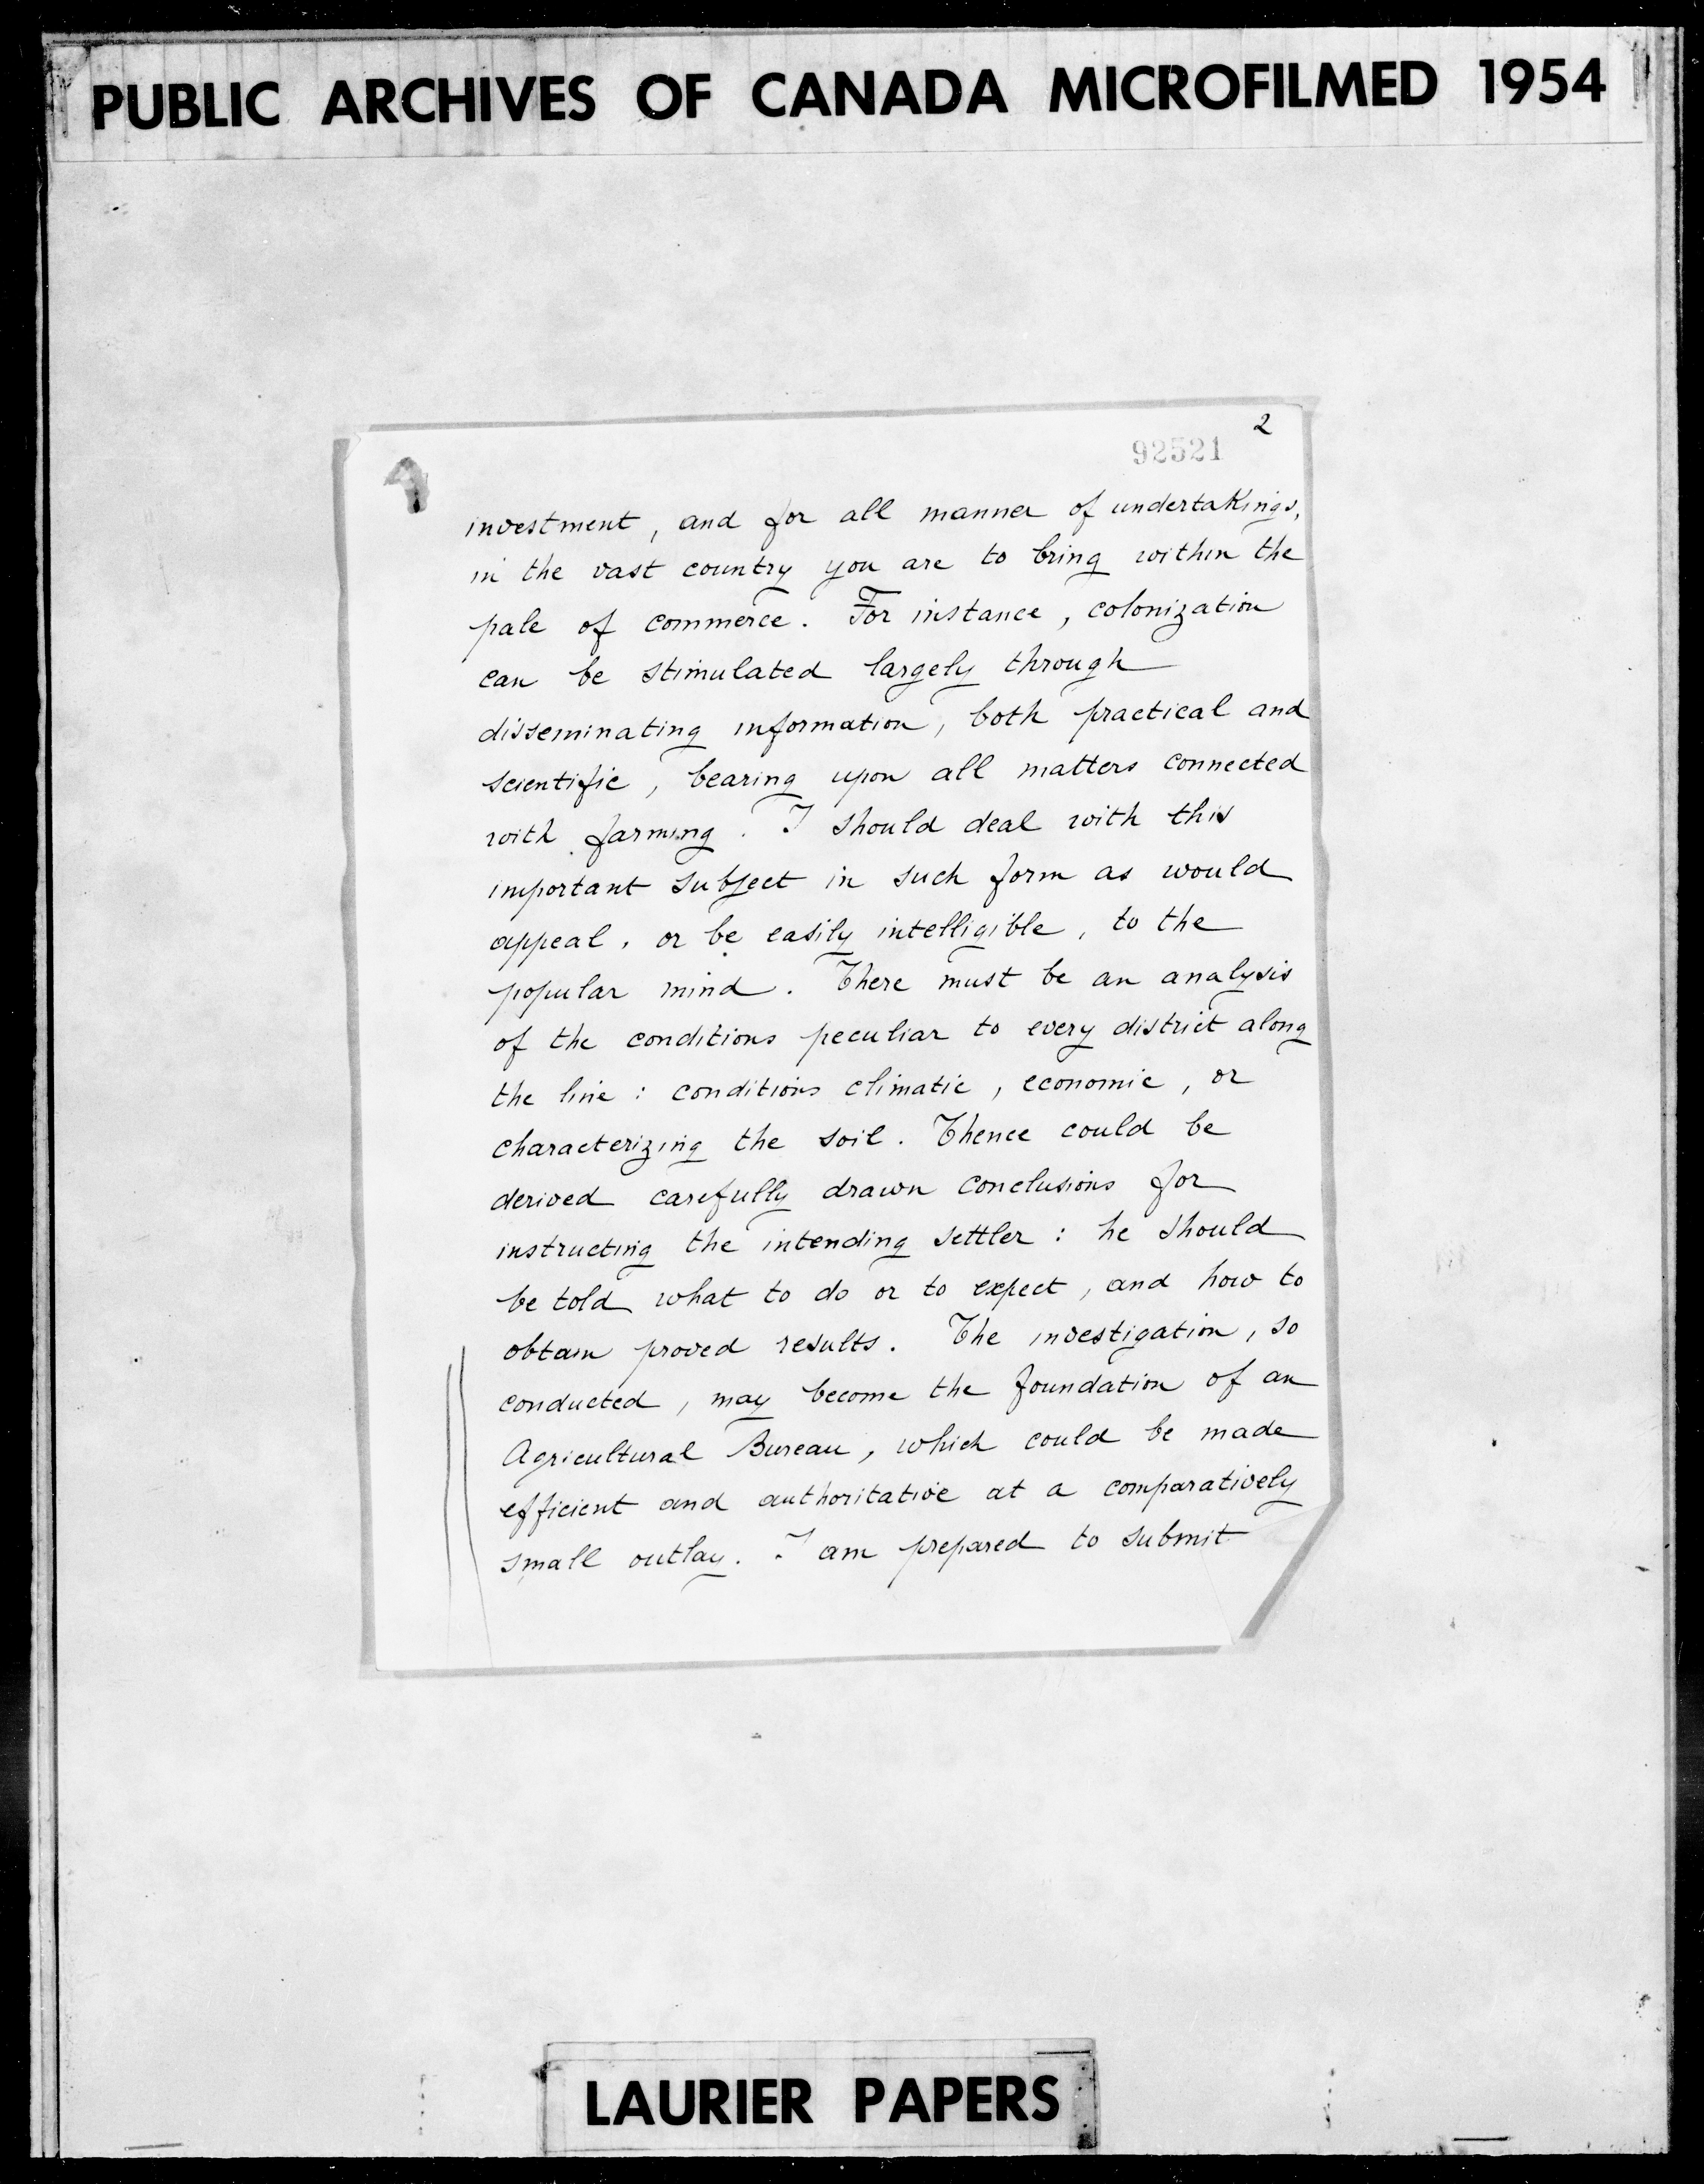 PUBLIC ARCHIVES OF CANADA MICROFILMED 1954
2
92521
investment, and for all manner of undertakings,
in the vast country you are to bring within the
pale of commerce. For instance, colonization
can be stimulated largely through
disseminating information, both practical and
scientific, bearing upon all matters connected
with farming. I should deal with this
important subject in such form as would
appeal, or be easily intelligible, to the
popular mind. There must be an analysis
of the conditions peculiar to every district along
the line: conditions climatic, economic, or
characterizing the soil. Thence could be
derived carefully drawn conclusions for
instructing the intending settler: he should
be told what to do or to expect, and how to
obtain proved results. The investigation, so
conducted, may become the foundation of an
Agricultural Bureau, which could be made
efficient and authoritative at a comparatively
small outlay. I am prepared to submit
LAURIER PAPERS